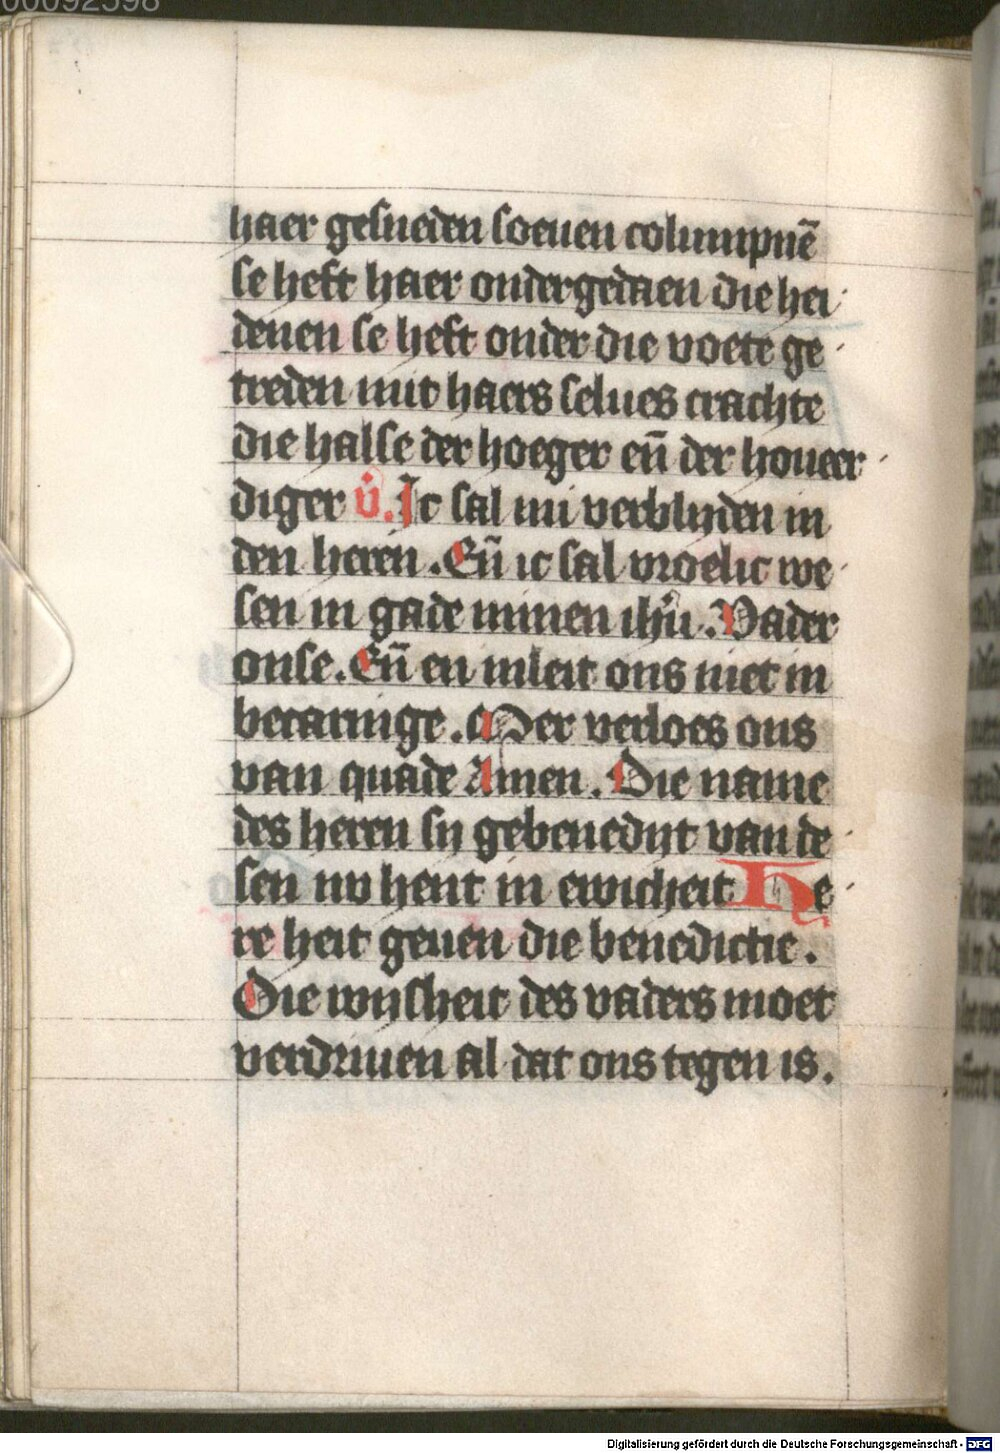 00092598
haer gesneden soeuen columpnē
se heft haer ondergedaen die hei
denen se heft onder die voete ge
treden mit haers selues crachte
die halse der hoeger eñ der houeer
diger v̇. Ic sal mi verblyden in
den heren. Eñ ic sal vroelic we
sen in gade minen ihū. Vader
onse. Eñ en inleit ons niet in
becaringe. Mer verloes ons
van quade Amen. Die name
des heren sy gebenedyt van de
sen nv hent in ewicheit He
re heit geuen die benedictie.
Die wysheit des vaders moet
verdriuen al dat ons tegen is.
Digitalisierung gefördert durch die Deutsche Forschungsgemeinschaft - DFG